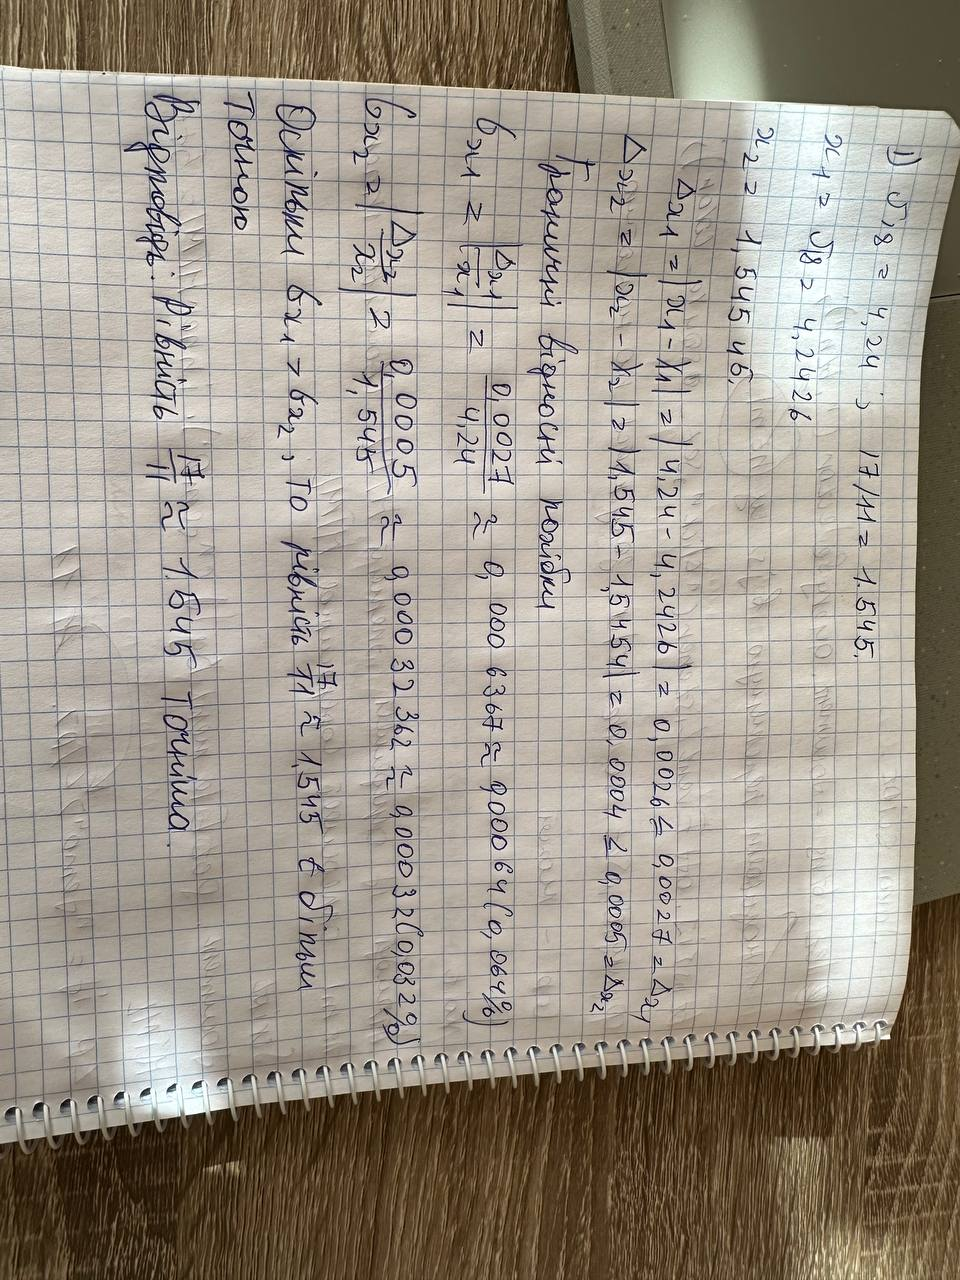 1) √18 = 4,24 ; 17/11 = 1.545.
x1 = √18 = 4,2426
x2 = 1,54546.
Δx1 = |x1 - X1| = |4,24 - 4,2426| = 0,0026 ≤ 0,0027 = Δx1
Δx2 = |x2 - X2| = |1,545 - 1,5454| = 0,0004 ≤ 0,0005 = Δx2
Граничні відносні похибки
бx1 = |Δx1/x1| = 0,0027/4,24 ≈ 0,0006367 ≈ 0,00064 (0,064%)
бx2 = |Δx2/x2| = 0,0005/1,545 ≈ 0,00032362 ≈ 0,00032 (0,032%)
Оскільки бx1 > бx2, то рівність 17/11 ≈ 1,545 є більш
точною
Відповідь: Рівність 17/11 ≈ 1.545 точніша.